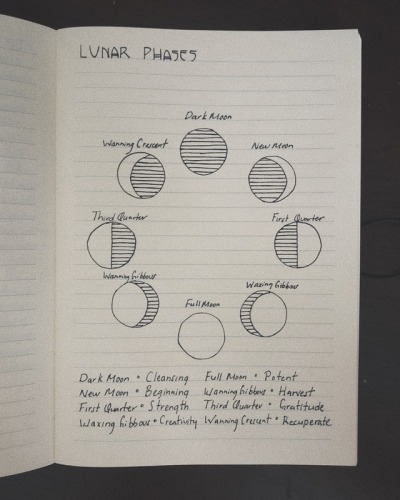 LUNAR PHASES
Dark Moon
Wanning Crescent
New Moon
Third Quarter
First Quarter
Wanning Gibbous
Waxing Gibbous
Full Moon
Dark Moon • Cleansing Full Moon • Potent
New Moon • Beginning Wanning Gibbous • Harvest
First Quarter • Strength Third Quarter • Gratitude
Waxing Gibbous • Creativity Wanning Crescent • Recuperate